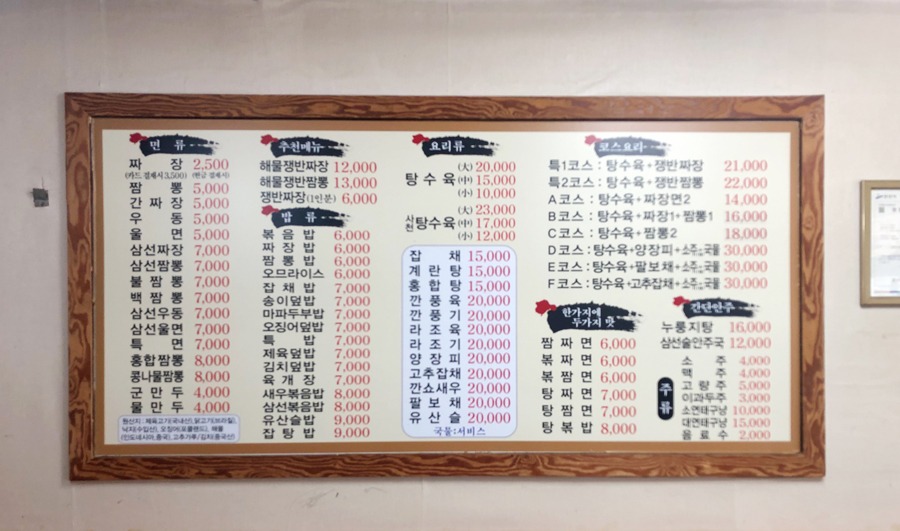 면 류
짜 장 2,500
(카드 결제시 3,500) (현금 결제시)
짬 뽕 5,000
간 짜 장 5,000
우 동 5,000
울 면 5,000
삼선짜장 7,000
삼선짬뽕 7,000
불 짬 뽕 7,000
백 짬 뽕 7,000
삼선우동 7,000
삼선울면 7,000
특 면 7,000
홍합짬뽕 8,000
콩나물짬뽕 8,000
군 만 두 4,000
물 만 두 4,000
원산지 : 제육고기(국내산), 닭고기(브라질),
낙지(수입산), 오징어(포클랜드), 해물
(인도네시아,중국), 고추가루/김치(중국산)
추천메뉴
해물쟁반짜장 12,000
해물쟁반짬뽕 13,000
쟁반짜장(1인분) 6,000
밥 류
볶 음 밥 6,000
짜 장 밥 6,000
짬 뽕 밥 6,000
오므라이스 6,000
잡 채 밥 7,000
송이덮밥 7,000
마파두부밥 7,000
오징어덮밥 7,000
특 밥 7,000
제육덮밥 7,000
김치덮밥 7,000
육 개 장 7,000
새우볶음밥 8,000
삼선볶음밥 8,000
유산슬밥 9,000
잡 탕 밥 9,000
요리류
탕 수 육 (大) 20,000
(中) 15,000
(小) 10,000
사천탕수육 (大) 23,000
(中) 17,000
(小) 12,000
잡 채 15,000
계 란 탕 15,000
홍 합 탕 15,000
깐 풍 육 20,000
깐 풍 기 20,000
라 조 육 20,000
라 조 기 20,000
양 장 피 20,000
고추잡채 20,000
깐쇼새우 20,000
팔 보 채 20,000
유 산 슬 20,000
국물:서비스
코스요리
특1코스 : 탕수육+쟁반짜장 21,000
특2코스 : 탕수육+쟁반짬뽕 22,000
A코스 : 탕수육+짜장면2 14,000
B코스 : 탕수육+짜장1+짬뽕1 16,000
C코스 : 탕수육+짬뽕2 18,000
D코스 : 탕수육+양장피+소주+국물 30,000
E코스 : 탕수육+팔보채+소주+국물 30,000
F코스 : 탕수육+고추잡채+소주+국물 30,000
한가지에
두가지 맛
짬 짜 면 6,000
볶 짜 면 6,000
볶 짬 면 6,000
탕 짜 면 7,000
탕 짬 면 7,000
탕 볶 밥 8,000
간단안주
누룽지탕 16,000
삼선술안주국 12,000
주류
소 주 4,000
맥 주 4,000
고 량 주 5,000
이과두주 3,000
소연태구냥 10,000
대연태구냥 15,000
음 료 수 2,000